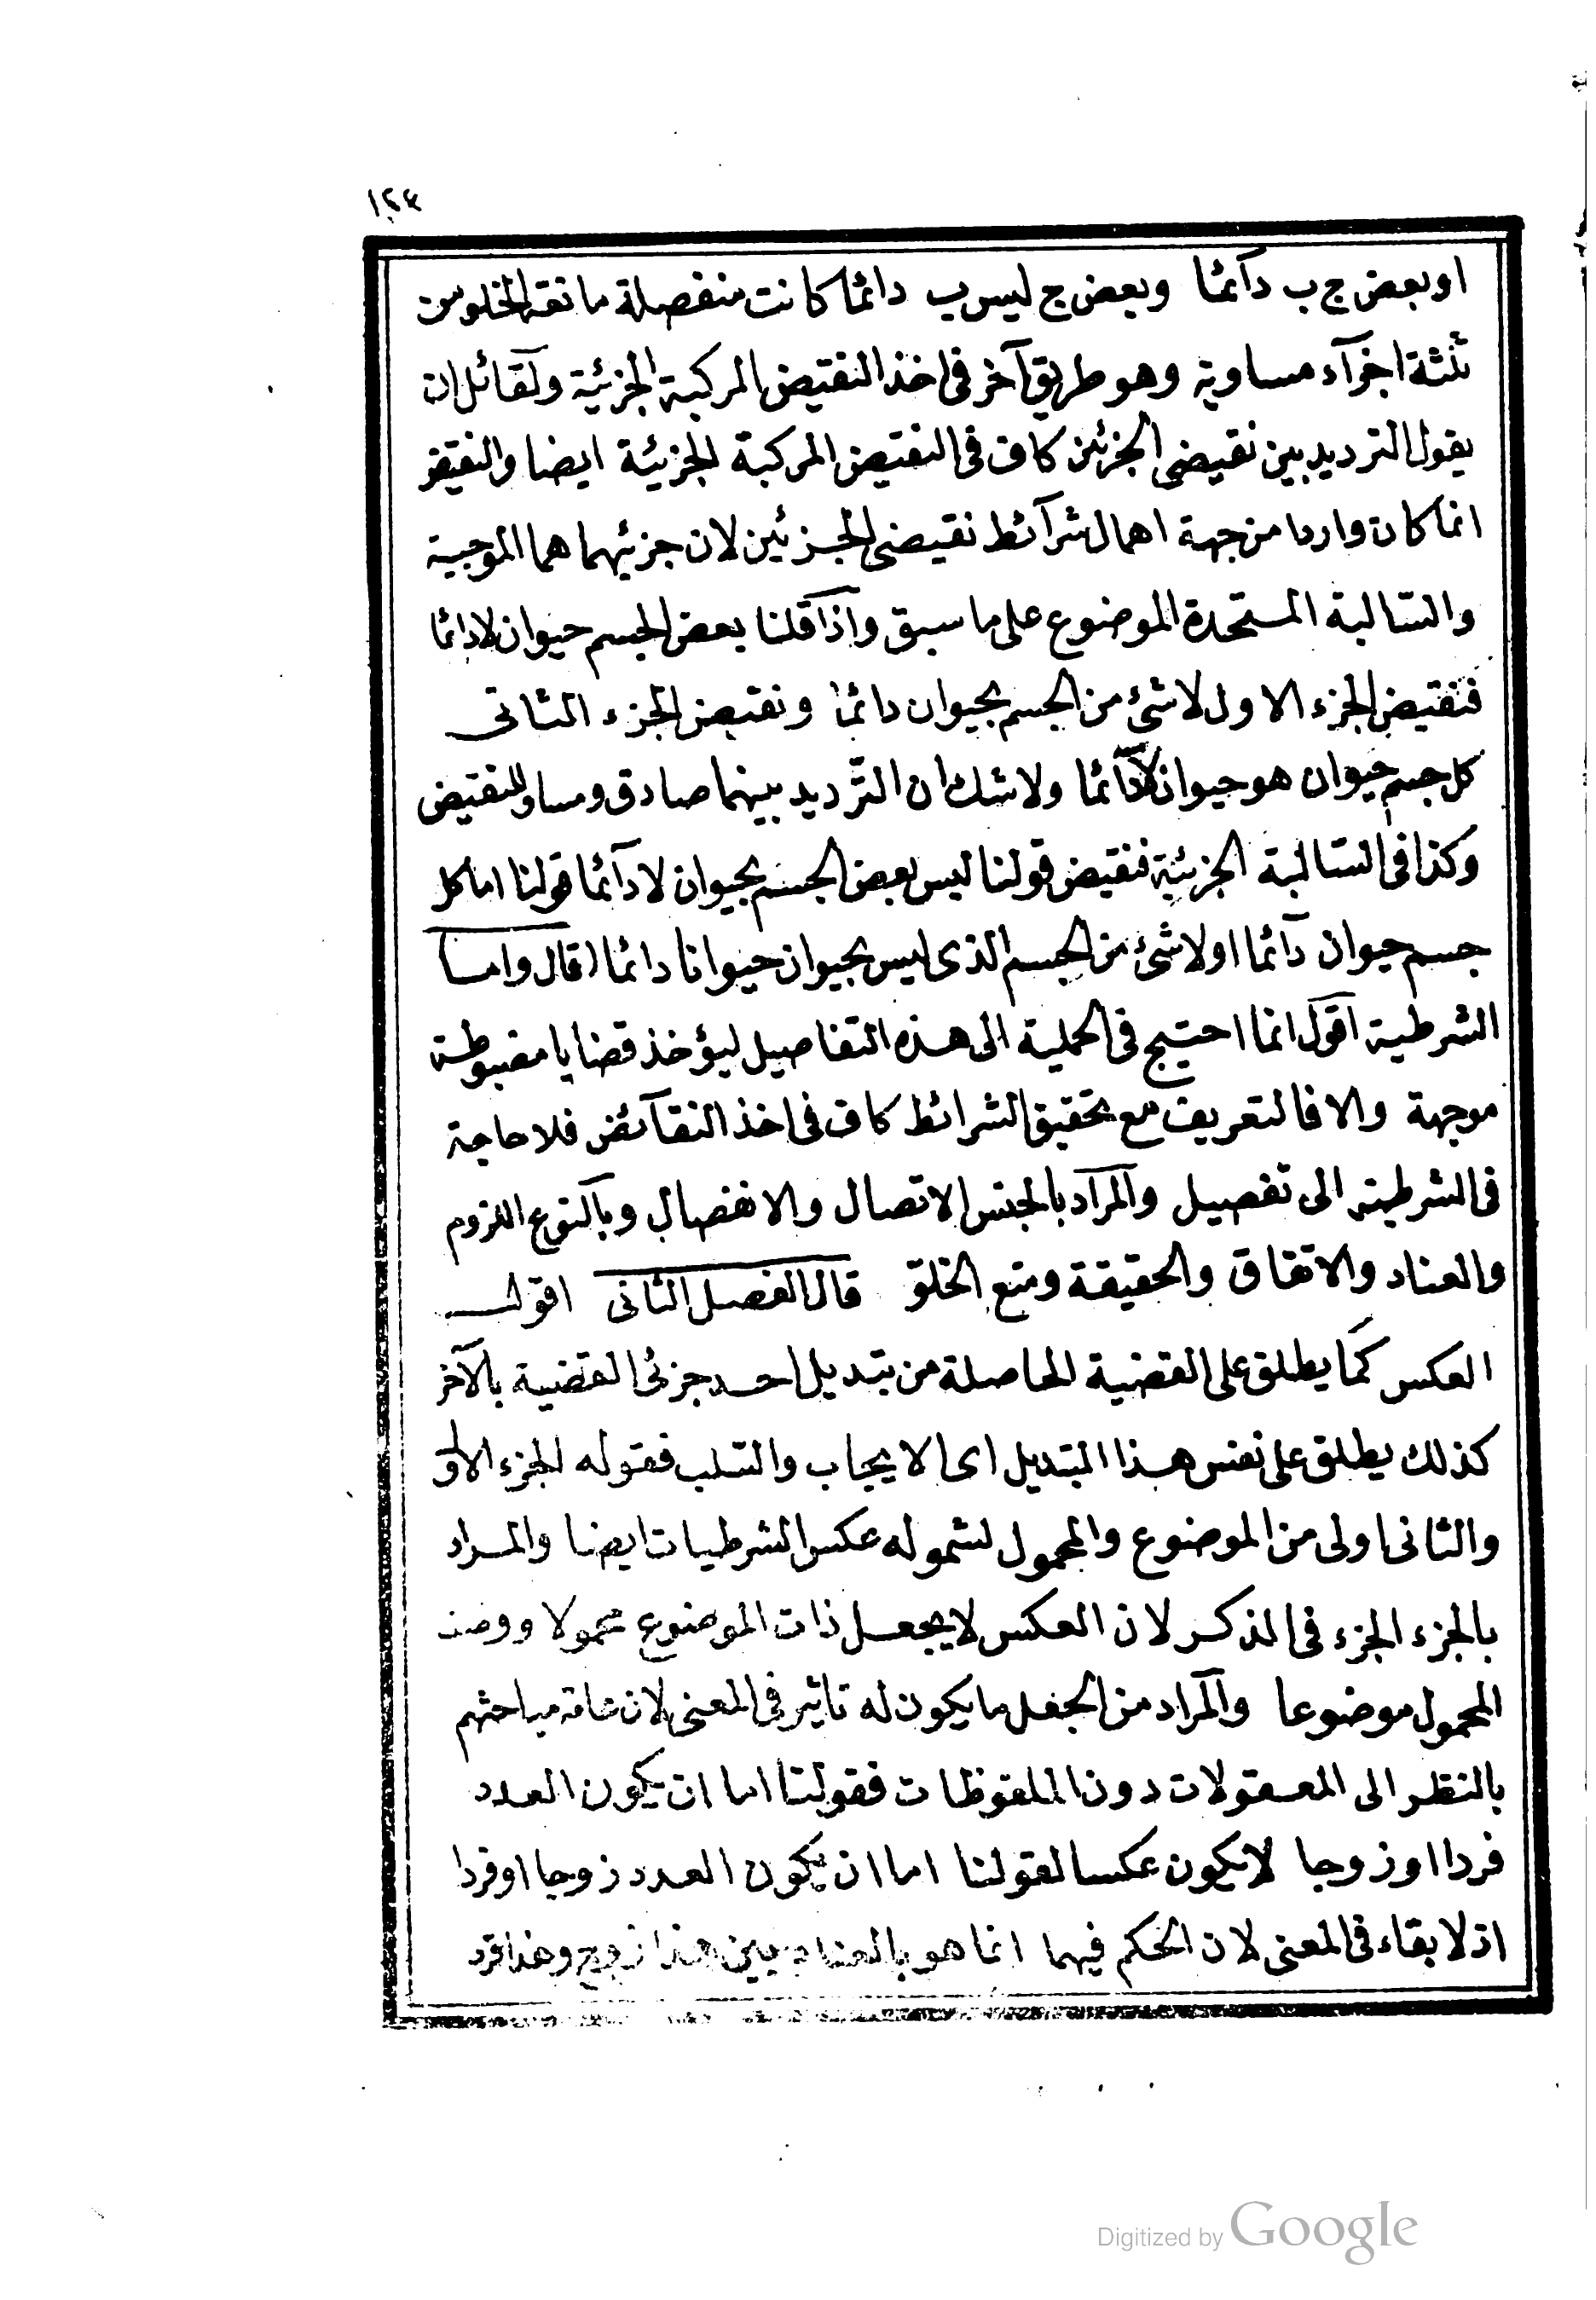 ١٢٤
او بعض ج ب دآئما وبعض ج ليس ب دائما كانت منفصلة مانعة الخلو من
ثلثة اجزآء مساوية وهو طريق آخر فى اخذ النقيض المركبة الجزئية ولقائل ان
يقول الترديد بين نقيضى الجزئين كاف فى النقيض المركبة الجزئية ايضا والنقيض
انما كان واردا من جهة اهمال شرآئط نقيضى الجزئين لان جزئيهما هما الموجبة
والسّالبة المتّحدة الموضوع على ما سبق واذا قلنا بعض الجسم حيوان لا دائما
فنقيض الجزء الاول لا شئ من الجسم بحيوان دائما ونقيض الجزء الثانى
كل جسم حيوان هو حيوان لا دآئما ولا شك ان التّرديد بينهما صادق ومساو للنقيض
وكذا فى السّالبة الجزئية فنقيض قولنا ليس بعض الجسم بحيوان لا دآئما قولنا اما كل
جسم حيوان دآئما او لا شئ من الجسم الذى ليس بحيوان حيوانا دائما (قال واما
الشرطية اقول انما احتيج فى الحملية الى هذه التفاصيل ليؤخذ قضايا مضبوطة
موجهة والا فالتعريف مع تحقيق الشرائط كاف فى اخذ النقآئض فلا حاجة
فى الشرطية الى تفصيل والمراد بالجنس الاتصال والانفصال وبالنوع اللزوم
والعناد والاتفاق والحقيقة ومنع الخلوّ قال الفصل الثانى اقول
العكس كما يطلق على القضية الحاصلة من تبديل احد جزئى القضية بالآخر
كذلك يطلق على نفس هذا التبديل اى الايجاب والسّلب فقوله الجزء الاول
والثانى اولى من الموضوع والمحمول لشموله عكس الشرطيات ايضا والمراد
بالجزء الجزء فى الذكر لان العكس لا يجعل ذات الموضوع محمولا ووصف
المحمول موضوعا والمراد من الجعل ما يكون له تاثير فى المعنى لان عامة مباحثهم
بالنظر الى المعقولات دون الملفوظات فقولنا اما ان يكون العدد
فردا او زوجا لا يكون عكسا لقولنا اما ان يكون العدد زوجا او فردا
اذ لا بقاء فى المعنى لان الحكم فيهما انما هو بالعناد بين هذا زوج وهذا فرد
Digitized by Google